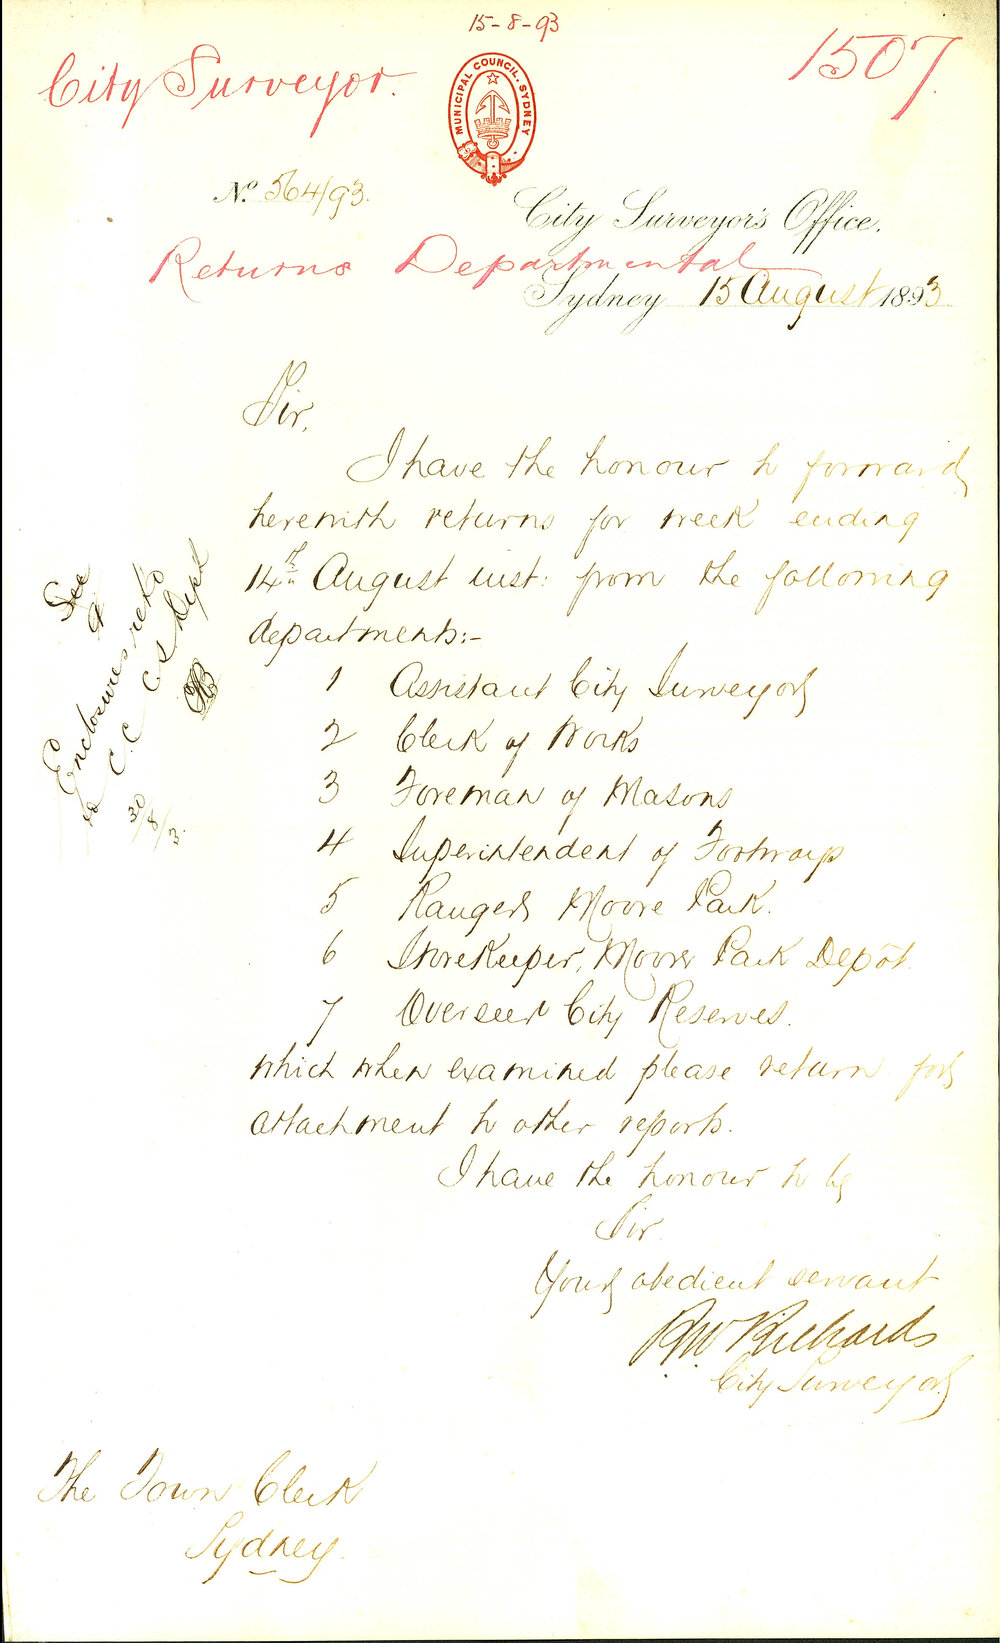 15-8-93
City Surveyor.
1507
MUNICIPAL COUNCIL. SYDNEY
No. 564/93.
City Surveyor's Office.
Returns Departmental
Sydney 15 August 1893
Sir,
I have the honour to forward
herewith returns for week ending
14th August inst: from the following
departments:-
1 Assistant City Surveyor
2 Clerk of Works
3 Foreman of Masons
4 Superintendent of Footways
5 Ranger Moore Park.
6 Storekeeper, Moore Park Depôt.
7 Overseer City Reserves.
which when examined please return for
attachment to other reports.
I have the honour to be
Sir.
Your obedient servant
R.W. Richards
City Surveyor.
The Town Clerk
Sydney.
See
Enclosures retd
to C.C. C S Dept
30/8/3.